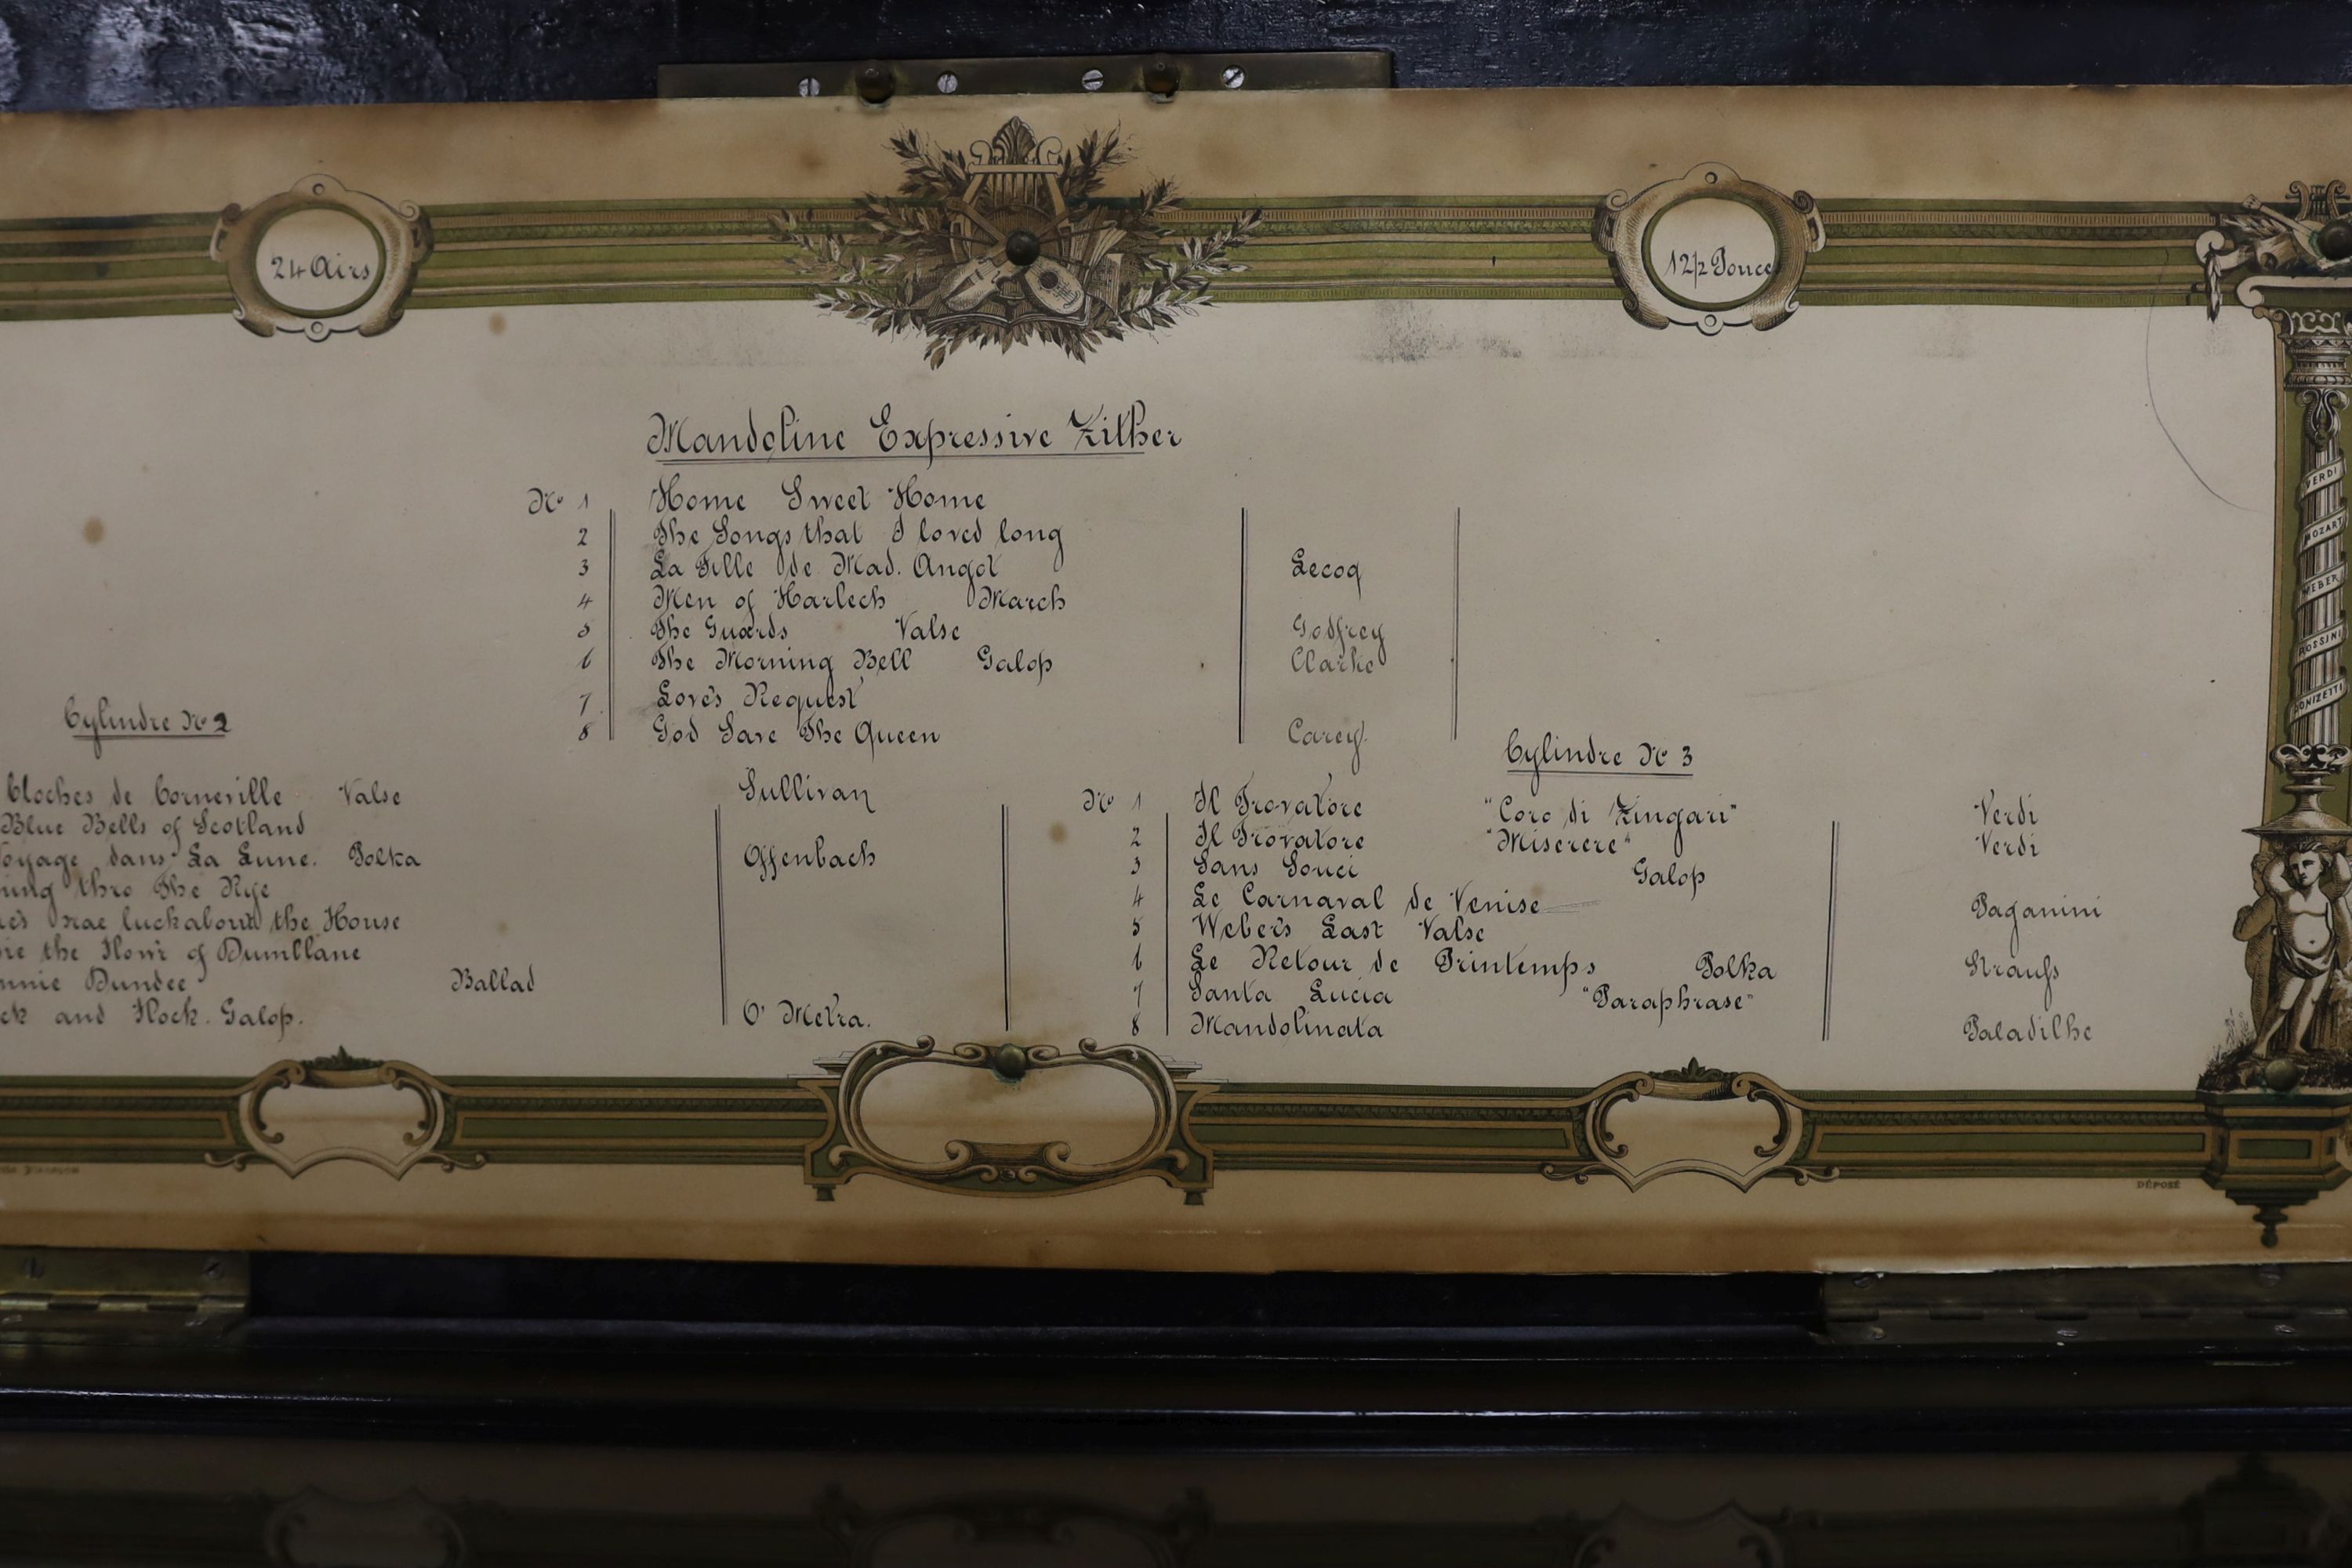 24 Airs
12½ Pouce
Mandoline Expressive Zither
No 1 Home Sweet Home
2 The Songs that I loved long
3 La Fille de Mad. Angot Lecoq
4 Men of Harlech March
5 The Guards Valse Godfrey
6 The Morning Bell Galop Clarke
7 Love's Request
8 God Save The Queen Carey
Cylindre No 2
Cloches de Corneville Valse Sullivan
Blue Bells of Scotland
Voyage dans La Lune. Polka Offenbach
thro The Rye
nae luck about the House
the Flow'r of Dumblane
Dundee Ballad
and Flock. Galop. O' Metra.
Cylindre No 3
No 1 Il Trovatore "Coro di Zingari" Verdi
2 Il Trovatore "Miserere" Verdi
3 Sans Souci Galop
4 Le Carnaval de Venise Paganini
5 Weber's Last Valse
6 Le Retour de Printemps Polka Strauss
7 Santa Lucia "Paraphrase"
8 Mandolinata Paladilhe
VERDI
MOZART
WEBER
ROSSINI
DONIZETTI
DÉPOSÉ